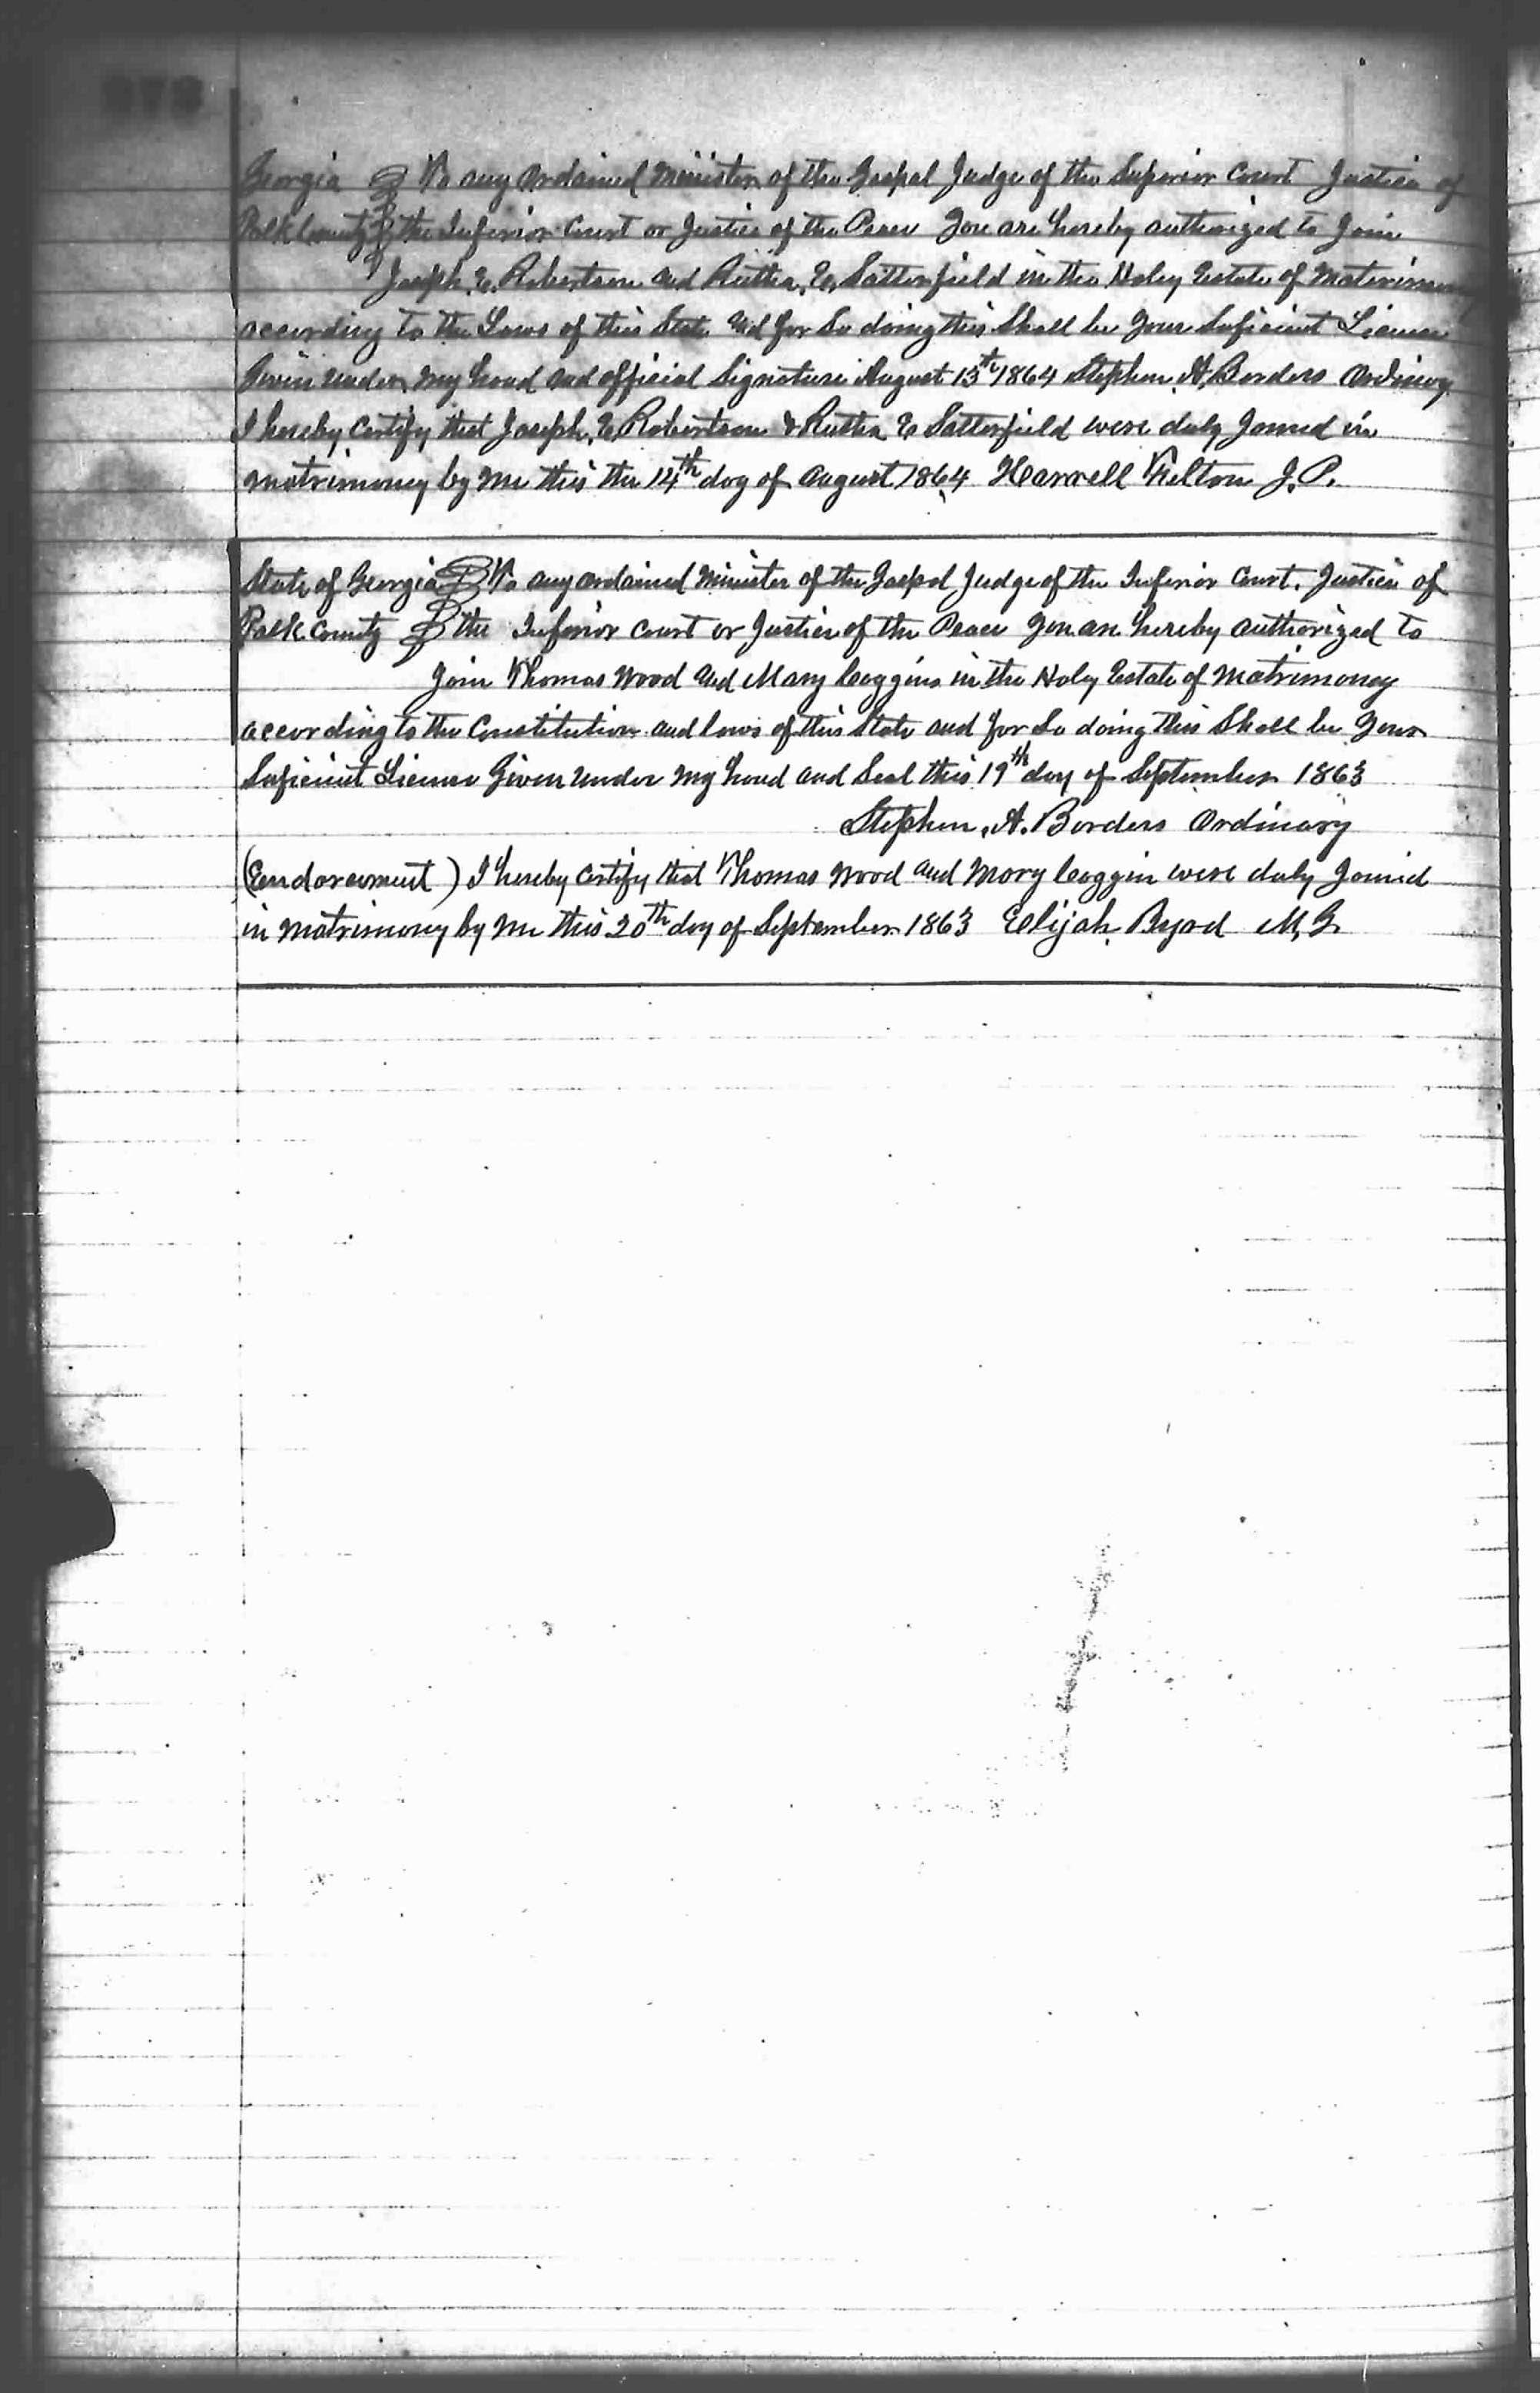 Georgia To any Ordained Minister of the Gospel Judge of the Superior Court Justice of
Polk County the Inferior Court or Justice of the Peace You are hereby authorized to Join
Joseph. E. Robertson and Rutha. E. Satterfield in the Holey Estate of Matrimony
according to the Laws of this State and for So doing this Shall be your Suficient License
Given under my hand and official Signature August 13th 1864 Stephen A. Borders Ordinary
I hereby Certify that Joseph. E Robertson & Rutha E Satterfield were duly Joined in
matrimoney by me this the 14th day of August 1864 Harrell J. P.
State of Georgia To any ordained Minister of the Gospel Judge of the Inferior Court. Justice of
Polk County the Inferior Court or Justice of the Peace You are hereby authorized to
Join Thomas Wood and Mary Coggins in the Holy Estate of Matrimoney
according to the Constitution and laws of this State and for So doing this Shall be your
Suficient License Given under my hand and Seal this 19th day of September 1863
Stephen. A. Borders Ordinary
(Endorsement) I hereby Certify that Thomas Wood and Mary Coggin were duly Joined
in Matrimoney by me this 20th day of September 1863 Elijah. Byrd M. G.